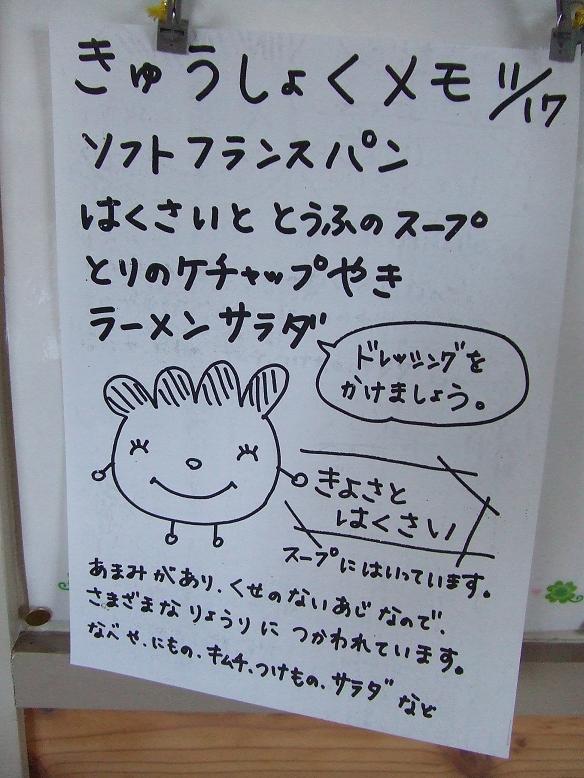 きゅうしょくメモ 11/17
ソフトフランスパン
はくさいと とうふのスープ
とりのケチャップやき
ラーメンサラダ
ドレッシングを
かけましょう。
きよさと
はくさい
スープにはいっています。
あまみがあり、くせのないあじなので、
さまざまなりょうりに つかわれています。
なべや、にもの、キムチ、つけもの、サラダなど